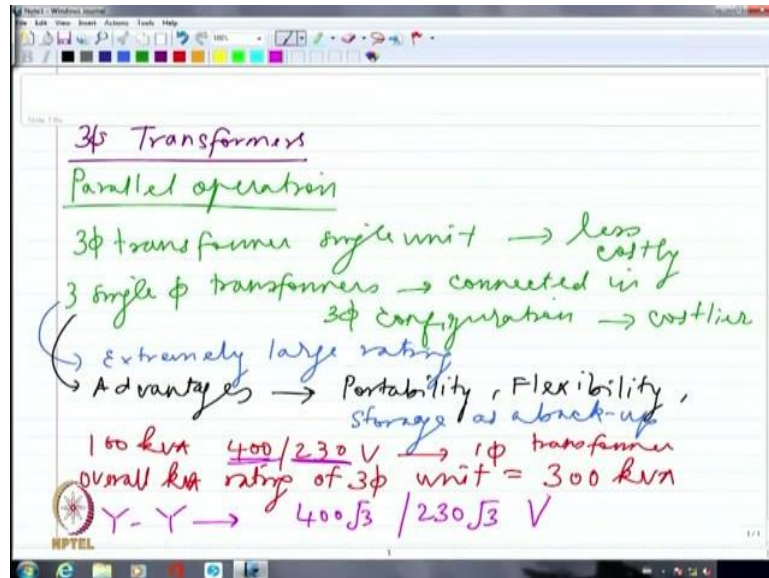 Note1 - Windows Journal
File Edit View Insert Actions Tools Help
100%
Note Title
3φ Transformers
Parallel operation
3φ transformer single unit → less costly
3 single φ transformers → connected in
3φ configuration → costlier
→ Extremely large rating
→ Advantages → Portability, Flexibility,
storage as a back-up
100 kVA 400/230 V → 1φ transformer
overall kVA rating of 3φ unit = 300 kVA
Y-Y → 400√3 / 230√3 V
NPTEL
1/1
1